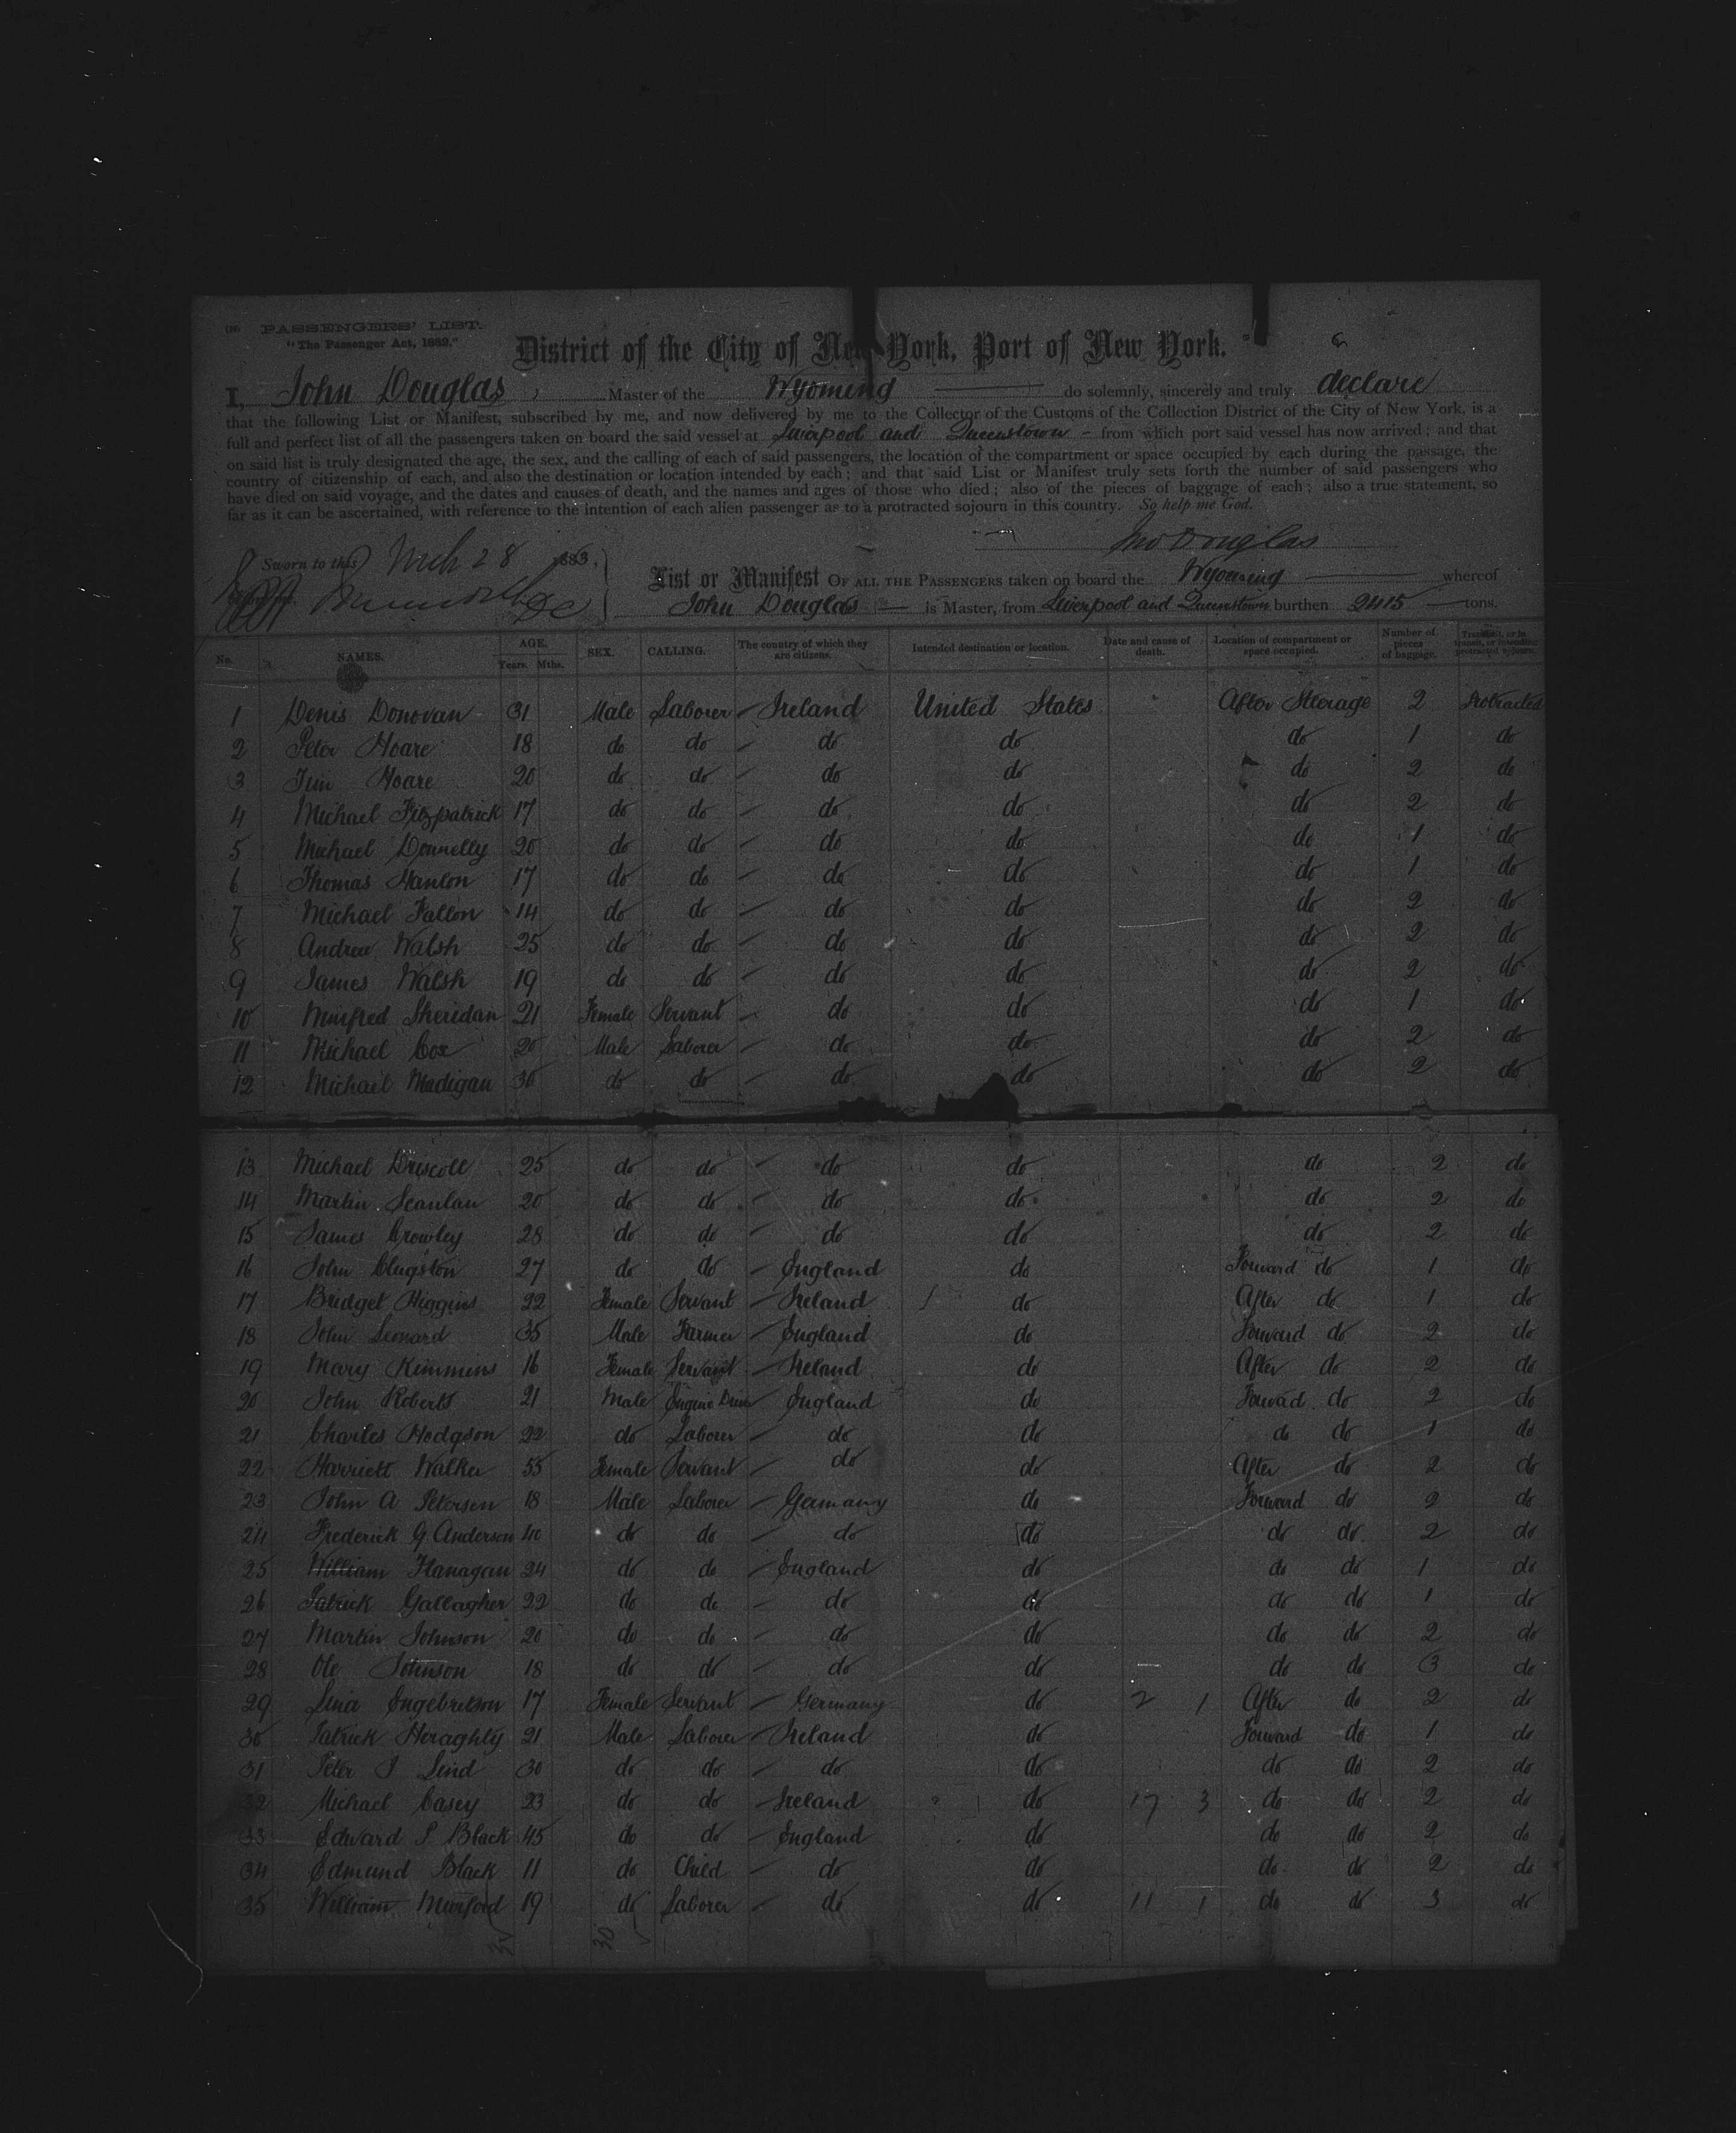 PASSENGERS' LIST.
"The Passenger Act, 1882."
District of the City of New York, Port of New York.
I, John Douglas, Master of the Wyoming do solemnly, sincerely and truly declare
that the following List or Manifest, subscribed by me, and now delivered by me to the Collector of the Customs of the Collection District of the City of New York, is a
full and perfect list of all the passengers taken on board the said vessel at Liverpool and Queenstown - from which port said vessel has now arrived; and that
on said list is truly designated the age, the sex, and the calling of each of said passengers, the location of the compartment or space occupied by each during the passage, the
country of citizenship of each, and also the destination or location intended by each; and that said List or Manifest truly sets forth the number of said passengers who
have died on said voyage, and the dates and causes of death, and the names and ages of those who died; also of the pieces of baggage of each; also a true statement, so
far as it can be ascertained, with reference to the intention of each alien passenger as to a protracted sojourn in this country. So help me God.
Jno Douglas
Sworn to this Mch 28 1883.
List or Manifest OF ALL THE PASSENGERS taken on board the Wyoming whereof
John Douglas is Master, from Liverpool and Queenstown burthen 2415 tons.
No. NAMES. AGE. Years. Mths. SEX. CALLING. The country of which they are citizens. Intended destination or location. Date and cause of death. Location of compartment or space occupied. Number of pieces of baggage. Transient, or in transit, or intending protracted sojourn.
1 Denis Donovan 31 Male Laborer Ireland United States After Steerage 2 Protracted
2 Peter Hoare 18 do do do do do 1 do
3 Tim Hoare 20 do do do do do 2 do
4 Michael Fitzpatrick 17 do do do do do 2 do
5 Michael Donnelly 20 do do do do do 1 do
6 Thomas Hanlon 17 do do do do do 1 do
7 Michael Fallon 14 do do do do do 2 do
8 Andrew Walsh 25 do do do do do 2 do
9 James Walsh 19 do do do do do 2 do
10 Winifred Sheridan 21 Female Servant do do do 1 do
11 Michael Cox 20 Male Laborer do do do 2 do
12 Michael Madigan 30 do do do do do 2 do
13 Michael Driscoll 25 do do do do do 2 do
14 Martin Scanlan 20 do do do do do 2 do
15 James Crowley 28 do do do do do 2 do
16 John Clugston 27 do do England do Forward do 1 do
17 Bridget Higgins 22 Female Servant Ireland do After do 1 do
18 John Leonard 35 Male Farmer England do Forward do 2 do
19 Mary Kimmins 16 Female Servant Ireland do After do 2 do
20 John Roberts 21 Male Engine Driver England do Forwad do 2 do
21 Charles Hodgson 22 do Laborer do do do do 1 do
22 Harriett Walker 55 Female Servant do do After do 2 do
23 John A Petersen 18 Male Laborer Germany do Forward do 2 do
24 Frederick G Anderson 40 do do do do do do 2 do
25 William Flanagan 24 do do England do do do 1 do
26 Patrick Gallagher 22 do do do do do do 1 do
27 Martin Johnson 20 do do do do do do 2 do
28 Ole Johnson 18 do do do do do do 3 do
29 Lina Engebretson 17 Female Servant Germany do 2 1 After do 2 do
30 Patrick Heraghty 21 Male Laborer Ireland do Forward do 1 do
31 Peter J Lind 30 do do do do do do 2 do
32 Michael Casey 23 do do Ireland do 17 3 do do 2 do
33 Edward P Black 45 do do England do do do 2 do
34 Edmund Black 11 do Child do do do do 2 do
35 William Munford 19 do Laborer do do 11 1 do do 3 do
30